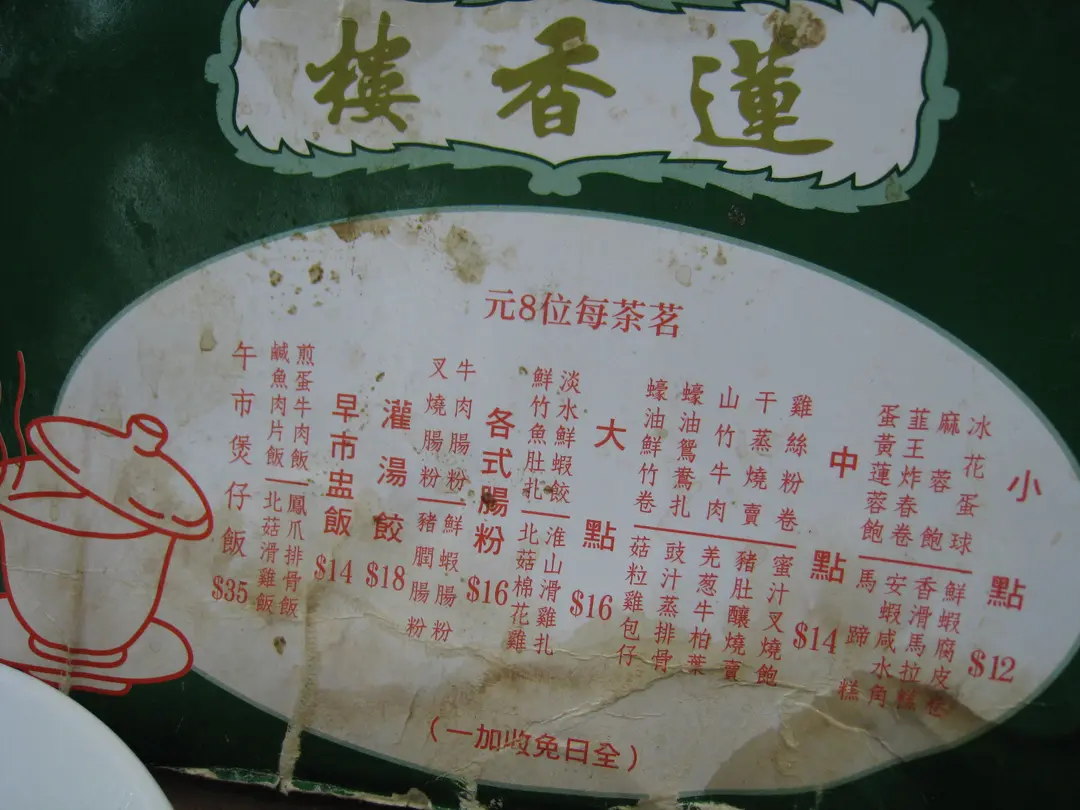 蓮香樓
茗茶每位8元
小點 $12
冰花蛋球
麻蓉飽
韮王炸春卷
蛋黃蓮蓉飽
鮮蝦腐皮卷
香滑馬拉糕
安蝦咸水角
馬蹄糕
中點 $14
雞絲粉卷
干蒸燒賣
山竹牛肉
蠔油鴛鴦扎
蠔油鮮竹卷
蜜汁叉燒飽
豬肚釀燒賣
羌葱牛柏葉
豉汁蒸排骨
菇粒雞包仔
大點 $16
淡水鮮蝦餃
鮮竹魚肚扎
淮山滑雞扎
北菇棉花雞
各式腸粉 $16
牛肉腸粉
叉燒腸粉
鮮蝦腸粉
豬膶腸粉
灌湯餃 $18
早市盅飯 $14
煎蛋牛肉飯
鹹魚肉片飯
鳳爪排骨飯
北菇滑雞飯
午市煲仔飯 $35
（全日免收加一）